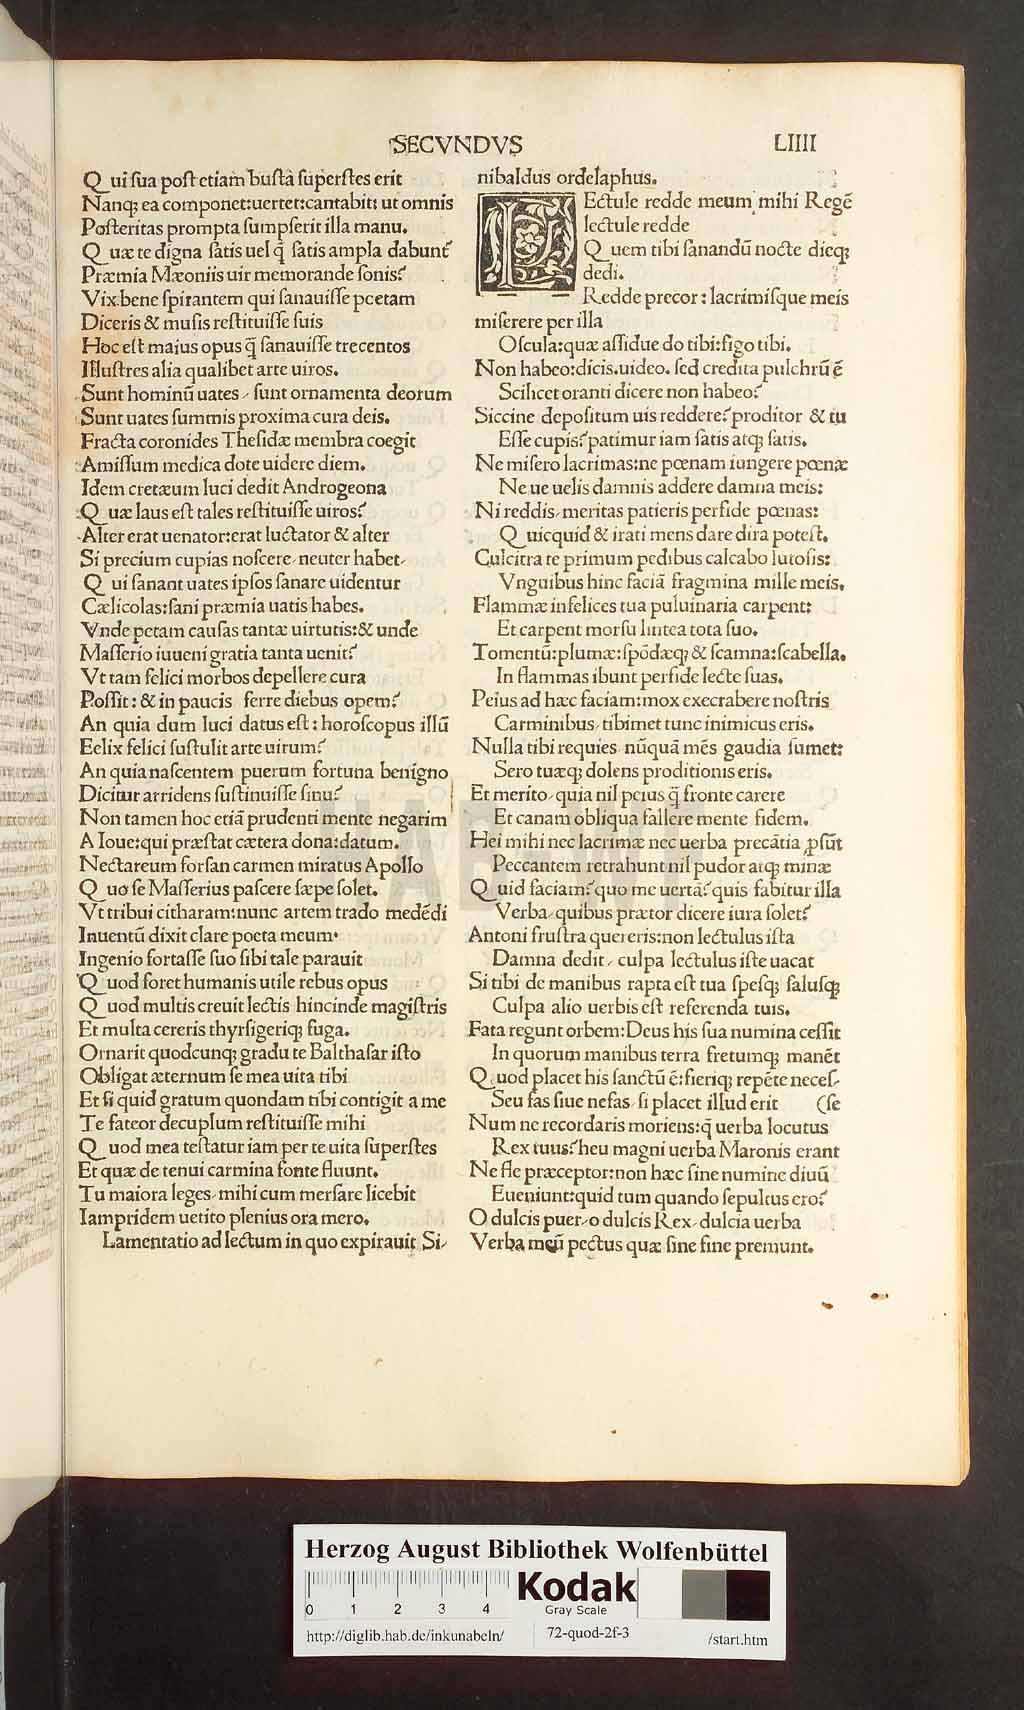 SECVNDVS
LIIII
Q ui sua post etiam busta superstes erit
Nanq; ea componet: uertet: cantabit: ut omnis
Posteritas prompta sumpserit illa manu.
Q uæ te digna satis uel q̃ satis ampla dabunt᷑
Præmia Mæoniis uir memorande sonis?
Vix bene spirantem qui sanauisse poetam
Diceris & musis restituisse suis
Hoc est maius opus q̃ sanauisse trecentos
Illustres alia qualibet arte uiros.
Sunt hominū uates / sunt ornamenta deorum
Sunt uates summis proxima cura deis.
Fracta coronides Thesidæ membra coegit
Amissum medica dote uidere diem.
Idem cretæum luci dedit Androgeona
Q uæ laus est tales restituisse uiros?
Alter erat uenator: erat luctator & alter
Si precium cupias noscere / neuter habet /
Q ui sanant uates ipsos sanare uidentur
Cælicolas: sani præmia uatis habes.
Vnde petam causas tantæ uirtutis: & unde
Masserio iuueni gratia tanta uenit?
Vt tam felici morbos depellere cura
Possit: & in paucis ferre diebus opem?
An quia dum luci datus est: horoscopus illū
Eelix felici sustulit arte uirum?
An quia nascentem puerum fortuna benigno
Dicitur arridens sustinuisse sinu?
Non tamen hoc etiā prudenti mente negarim
A Ioue: qui præstat cætera dona: datum.
Nectareum forsan carmen miratus Apollo
Q uo se Masserius pascere sæpe solet.
Vt tribui citharam: nunc artem trado medẽdi
Inuentū dixit clare poeta meum.
Ingenio fortasse suo sibi tale parauit
Q uod foret humanis utile rebus opus
Q uod multis creuit lectis hincinde magistris
Et multa cereris thyrsigeriq; fuga.
Ornarit quodcunq; gradu te Balthasar isto
Obligat æternum se mea uita tibi
Et si quid gratum quondam tibi contigit a me
Te fateor decuplum restituisse mihi
Q uod mea testatur iam per te uita superstes
Et quæ de tenui carmina fonte fluunt.
Tu maiora leges / mihi cum mersare licebit
Iampridem uetito plenius ora mero.
Lamentatio ad lectum in quo expirauit Si/
nibaldus ordelaphus.
LEctule redde meum mihi Regẽ
lectule redde
Q uem tibi sanandū nocte dieq;
dedi.
Redde precor: lacrimisque meis
miserere per illa
Oscula: quæ assidue do tibi: figo tibi.
Non habeo: dicis. uideo. sed credita pulchrū ẽ
Scilicet oranti dicere non habeo?
Siccine depositum uis reddere? proditor & tu
Esse cupis? patimur iam satis atq; satis.
Ne misero lacrimas: ne pœnam iungere pœnæ
Ne ue uelis damnis addere damna meis:
Ni reddis / meritas patieris perfide pœnas:
Q uicquid & irati mens dare dira potest.
Culcitra te primum pedibus calcabo lutosis:
Vnguibus hinc faciā fragmina mille meis.
Flammæ infelices tua puluinaria carpent:
Et carpent morsu lintea tota suo.
Tomentū: plumæ: spōdæq; & scamna: scabella.
In flammas ibunt perfide lecte suas.
Peius ad hæc faciam: mox execrabere nostris
Carminibus / tibimet tunc inimicus eris.
Nulla tibi requies / nūquā mẽs gaudia sumet:
Sero tuæq; dolens proditionis eris.
Et merito / quia nil peius q̃ fronte carere
Et canam obliqua fallere mente fidem.
Hei mihi nec lacrimæ nec uerba precātia ꝓsūt
Peccantem retrahunt nil pudor atq; minæ
Q uid faciam? quo me uertā? quis fabitur illa
Verba / quibus prætor dicere iura solet?
Antoni frustra quereris: non lectulus ista
Damna dedit / culpa lectulus iste uacat
Si tibi de manibus rapta est tua spesq; salusq;
Culpa alio uerbis est referenda tuis.
Fata regunt orbem: Deus his sua numina cessit
In quorum manibus terra fretumq; manẽt
Q uod placet his sanctū ẽ: fieriq; repẽte neces/
Seu fas siue nefas / si placet illud erit (se
Num ne recordaris moriens: q̃ uerba locutus
Rex tuus? heu magni uerba Maronis erant
Ne fle præceptor: non hæc sine numine diuū
Eueniunt: quid tum quando sepultus ero?
O dulcis puer / o dulcis Rex / dulcia uerba
Verba meū pectus quæ sine fine premunt.
HAB-WF
Herzog August Bibliothek Wolfenbüttel
0 1 2 3 4
Kodak
Gray Scale
http://diglib.hab.de/inkunabeln/
72-quod-2f-3
/start.htm